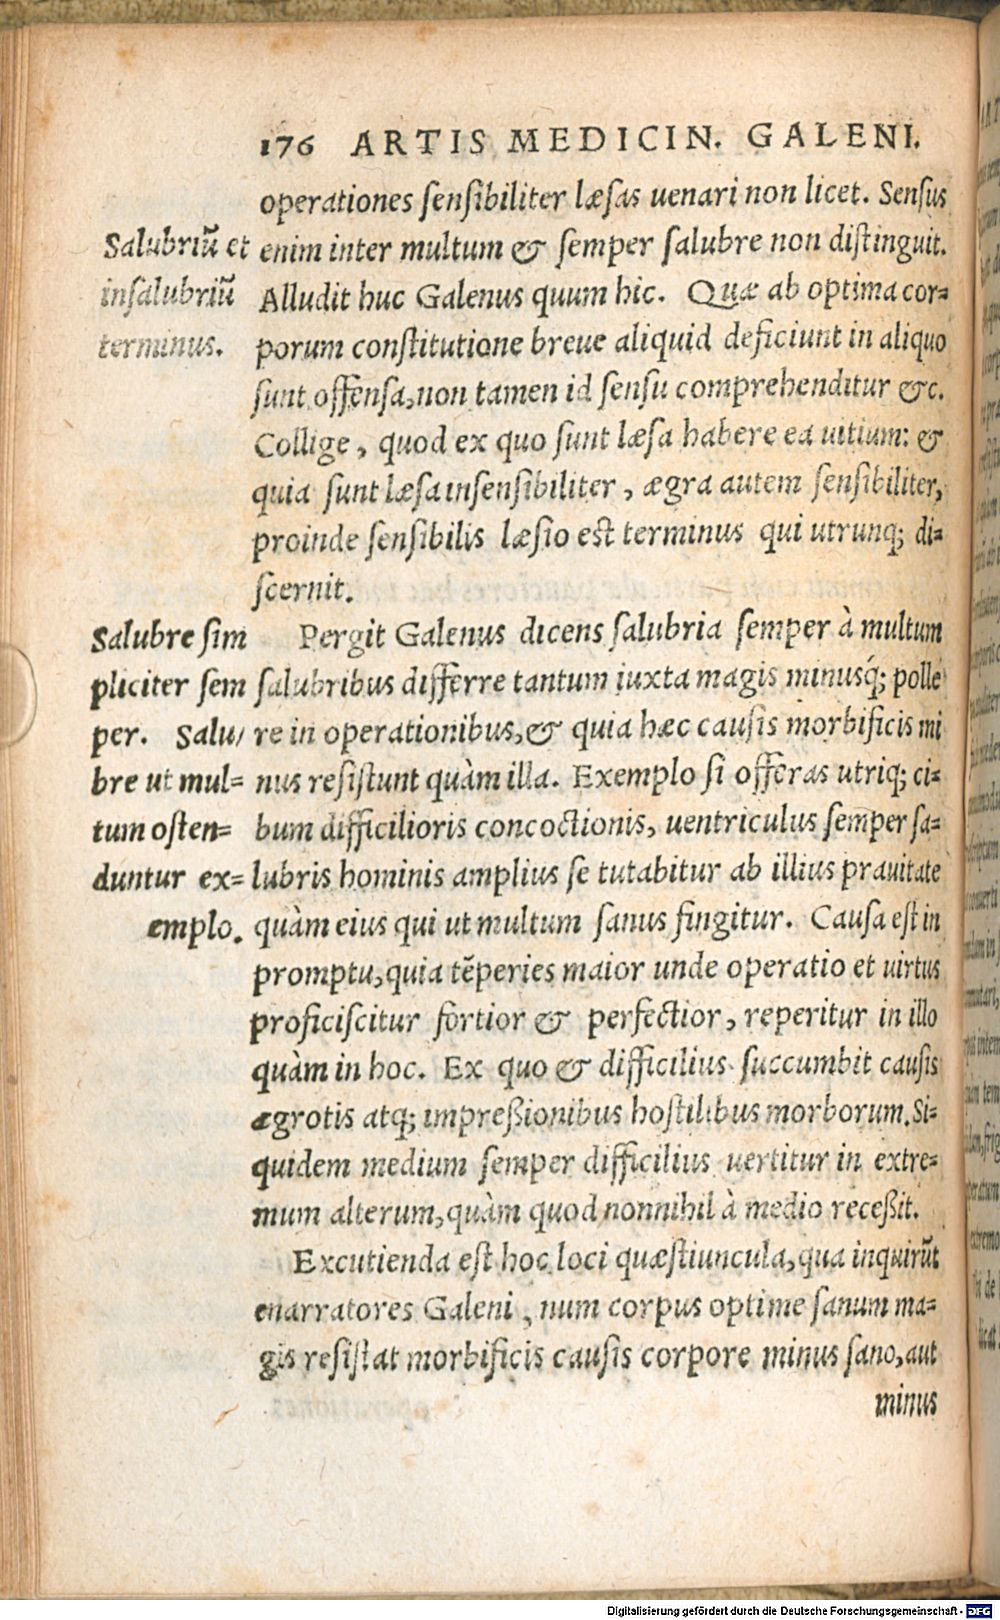 176 ARTIS MEDICIN. GALENI.
operationes sensibiliter læsas uenari non licet. Sensus
enim inter multum & semper salubre non distinguit.
Alludit huc Galenus quum hic. Quæ ab optima cor=
porum constitutione breue aliquid deficiunt in aliquo
sunt offensa, non tamen id sensu comprehenditur &c.
Collige, quod ex quo sunt læsa habere ea uitium: &
quia sunt læsa insensibiliter, ægra autem sensibiliter,
proinde sensibilis læsio est terminus qui utrunq; di=
scernit.
Salubriũ et
insalubriũ
terminus.
Pergit Galenus dicens salubria semper à multum
salubribus differre tantum iuxta magis minusq́; pollē
re in operationibus, & quia hæc causis morbificis mi
nus resistunt quàm illa. Exemplo si offeras utriq; ci=
bum difficilioris concoctionis, uentriculus semper sa=
lubris hominis amplius se tutabitur ab illius prauitate
quàm eius qui ut multum sanus fingitur. Causa est in
promptu, quia tẽperies maior unde operatio et uirtus
proficiscitur fortior & perfectior, reperitur in illo
quàm in hoc. Ex quo & difficilius succumbit causis
ægrotis atq; impreßionibus hostilibus morborum. Si=
quidem medium semper difficilius uertitur in extre=
mum alterum, quàm quod nonnihil à medio receßit.
Salubre sim
pliciter sem
per. Salu/
bre ut mul=
tum osten=
duntur ex=
emplo.
Excutienda est hoc loci quæstiuncula, qua inquirũt
enarratores Galeni, num corpus optime sanum ma=
gis resistat morbificis causis corpore minus sano, aut
minus
Digitalisierung gefördert durch die Deutsche Forschungsgemeinschaft - DFG